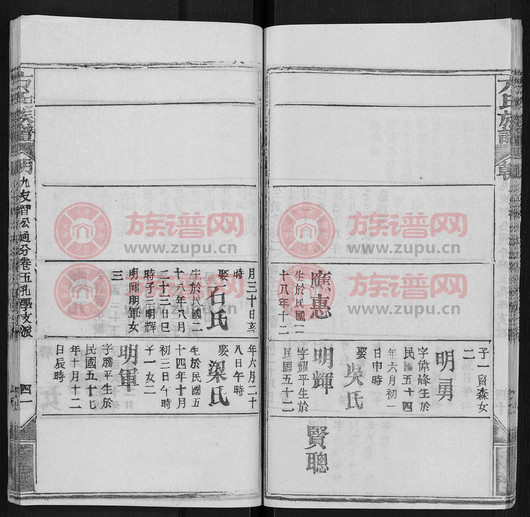 方氏族譜
應惠
生於民國二
十八年十二
月三十日亥
時
娶石氏
生於民國二
十八年八月
二十三日巳
時子三明輝
明勇明軍女
三
子一賢森女
二
明勇
字偉峰生於
民國五十四
年六月初一
日申時
娶吳氏
明輝
字耀平生於
民國五十二
年六月二十
八日午時
娶梁氏
生於民國五
十四年十月
初三日午時
子一女二
明軍
字騰平生於
民國五十七
年十月十二
日辰時
賢聰
九友習公通分卷五孔學支派
四一
族谱网
www.zupu.cn
族谱网
www.zupu.cn
族谱网
www.zupu.cn
族谱网
www.zupu.cn